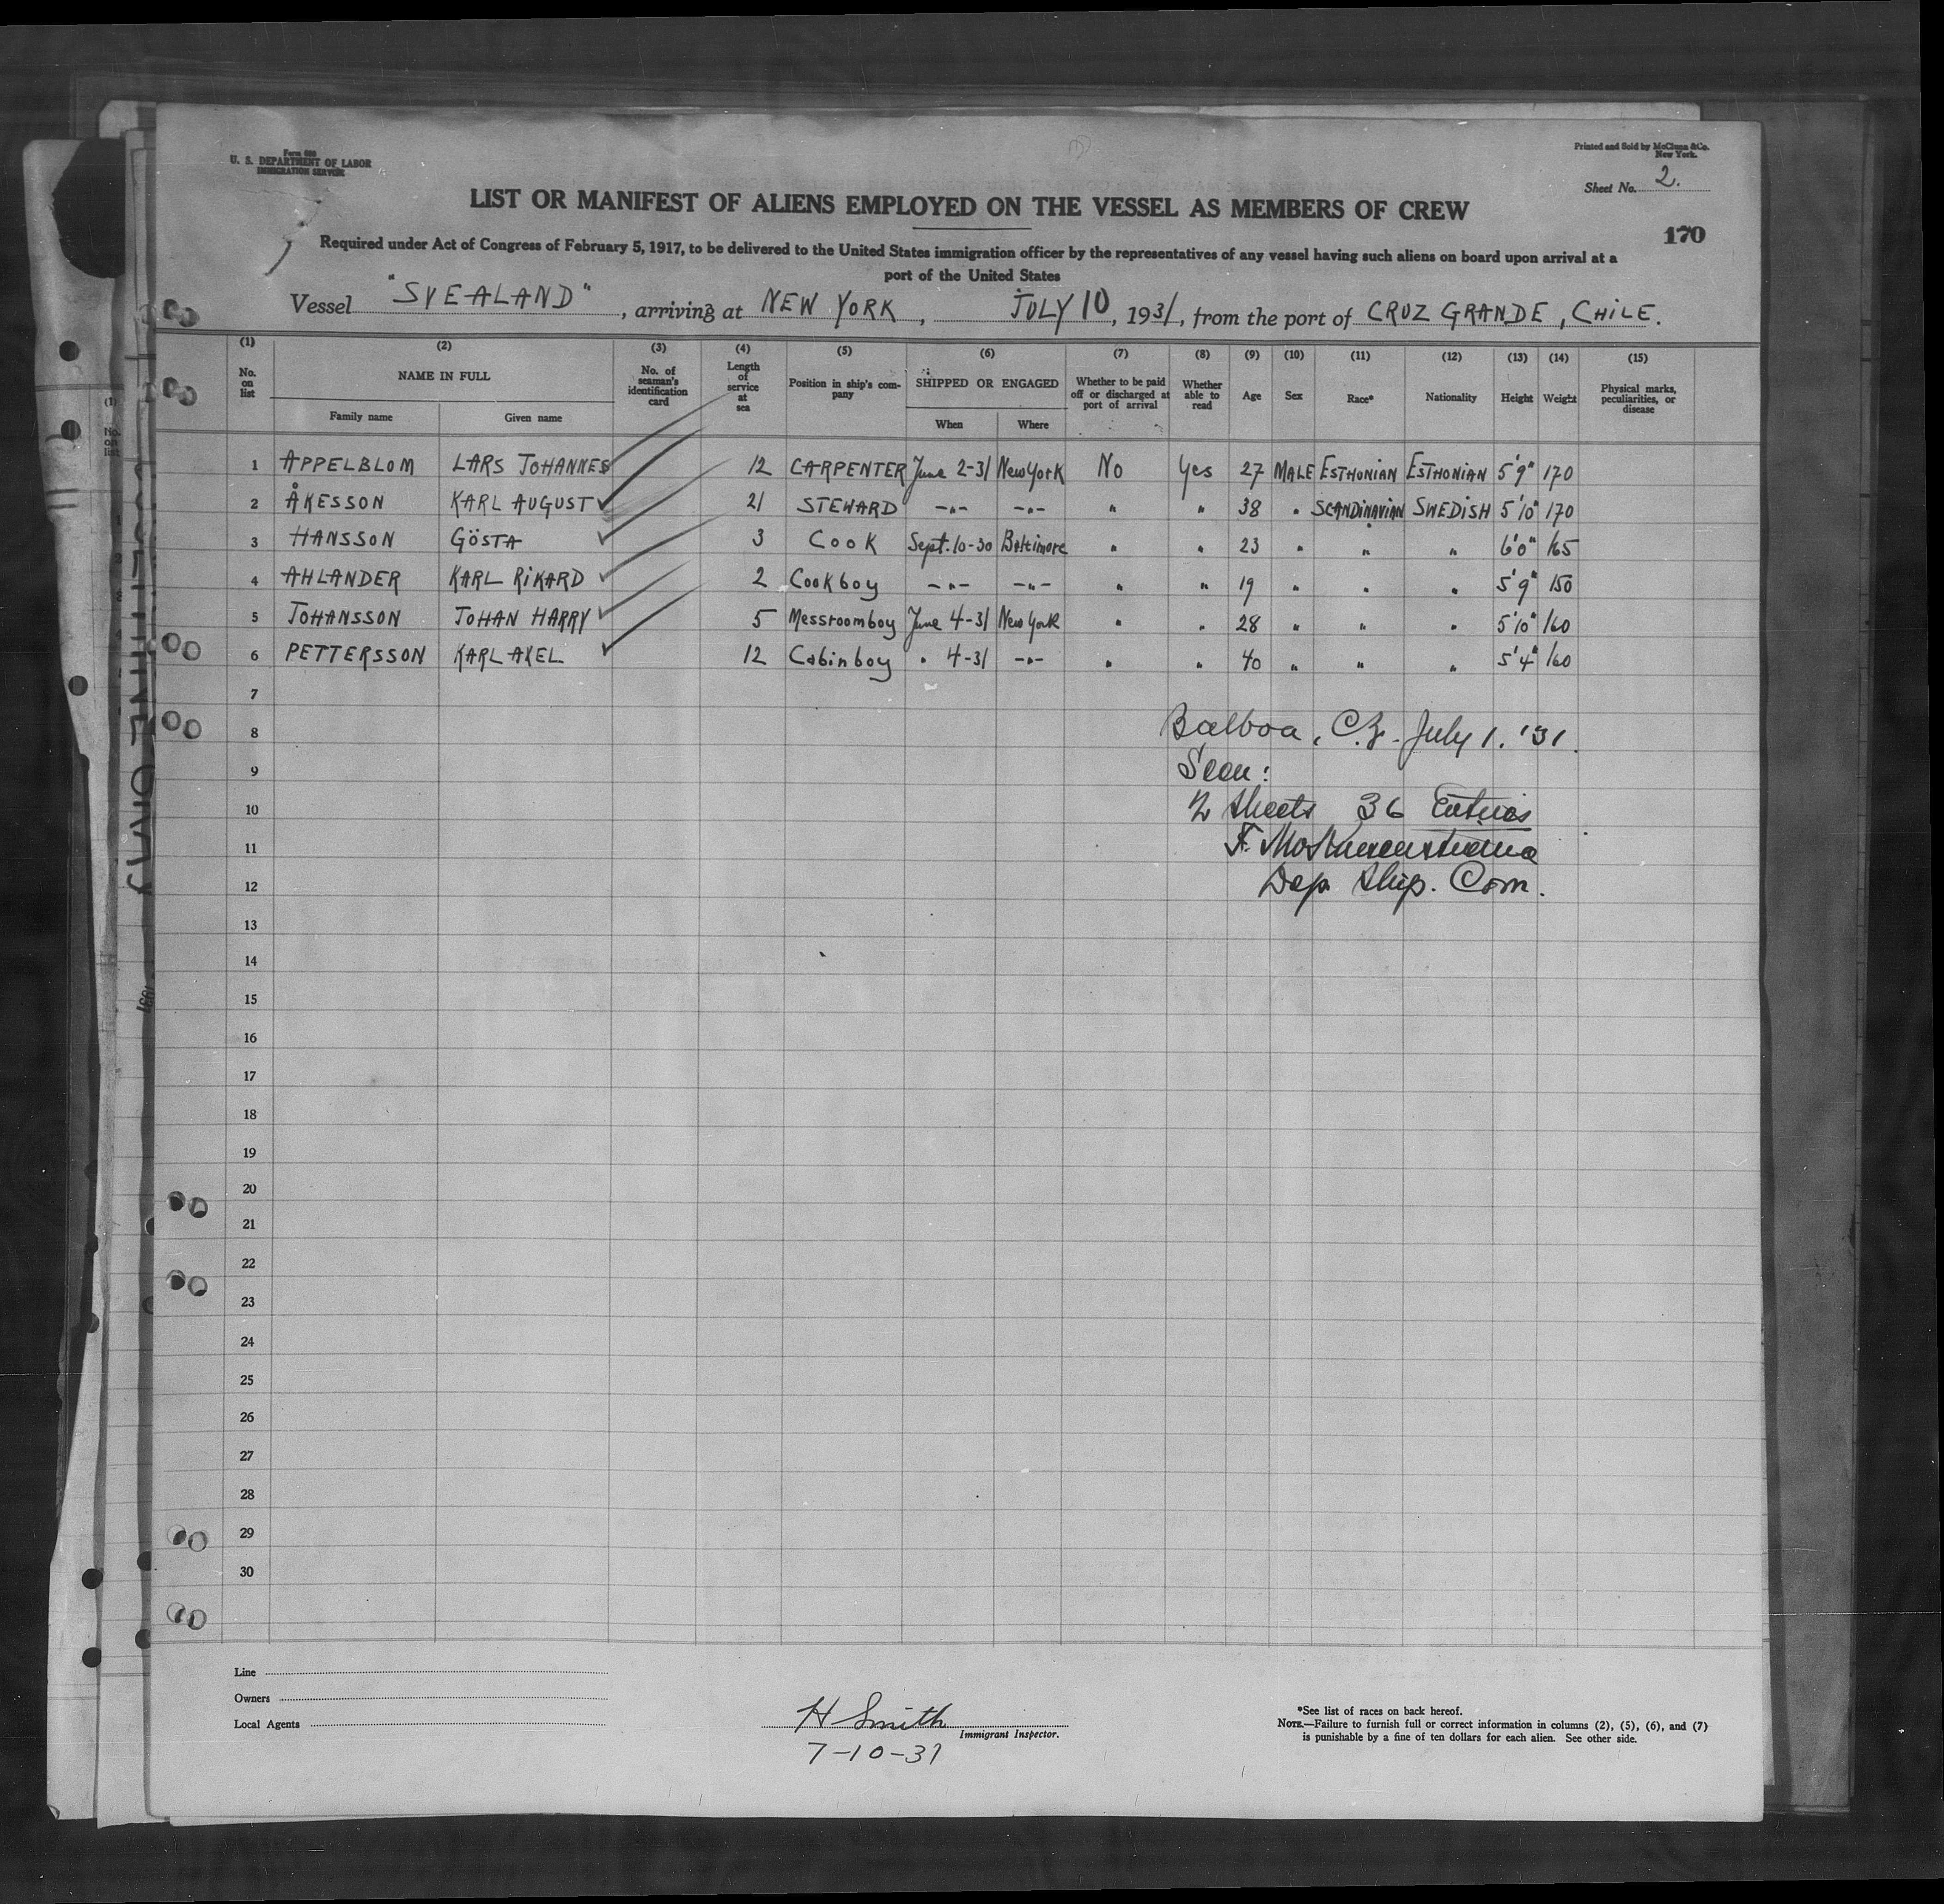 Form 680
U. S. DEPARTMENT OF LABOR
IMMIGRATION SERVICE
Printed and Sold by McClunn &Co.
New York.
Sheet No. 2.
LIST OR MANIFEST OF ALIENS EMPLOYED ON THE VESSEL AS MEMBERS OF CREW
170
Required under Act of Congress of February 5, 1917, to be delivered to the United States immigration officer by the representatives of any vessel having such aliens on board upon arrival at a
port of the United States
Vessel "SVEALAND", arriving at NEW YORK, JULY 10, 1931, from the port of CRUZ GRANDE, CHILE.
(1) (2) (3) (4) (5) (6) (7) (8) (9) (10) (11) (12) (13) (14) (15)
No. on list NAME IN FULL No. of seaman's identification card Length of service at sea Position in ship's company SHIPPED OR ENGAGED Whether to be paid off or discharged at port of arrival Whether able to read Age Sex Race* Nationality Height Weight Physical marks, peculiarities, or disease
Family name Given name When Where
1 APPELBLOM LARS JOHANNES 12 CARPENTER June 2-31 New York No Yes 27 MALE ESTHONIAN ESTHONIAN 5'9" 170
2 ÅKESSON KARL AUGUST 21 STEWARD -"- -"- " " 38 " SCANDINAVIAN SWEDISH 5'10" 170
3 HANSSON GÖSTA 3 COOK Sept. 10-30 Baltimore " " 23 " " " 6'0" 165
4 AHLANDER KARL RIKARD 2 Cookboy -"- -"- " " 19 " " " 5'9" 150
5 JOHANSSON JOHAN HARRY 5 Messroomboy June 4-31 New York " " 28 " " " 5'10" 160
6 PETTERSSON KARL AXEL 12 Cabinboy " 4-31 -"- " " 40 " " " 5'4" 160
7
8 Balboa, C.Z. July 1. '31.
9 Seen:
10 2 sheets 36 Entries
11 F.
12 Dep Ship. Com.
13
14
15
16
17
18
19
20
21
22
23
24
25
26
27
28
29
30
Line
Owners
Local Agents
H Smith
Immigrant Inspector.
7-10-31
*See list of races on back hereof.
NOTE.—Failure to furnish full or correct information in columns (2), (5), (6), and (7)
is punishable by a fine of ten dollars for each alien. See other side.